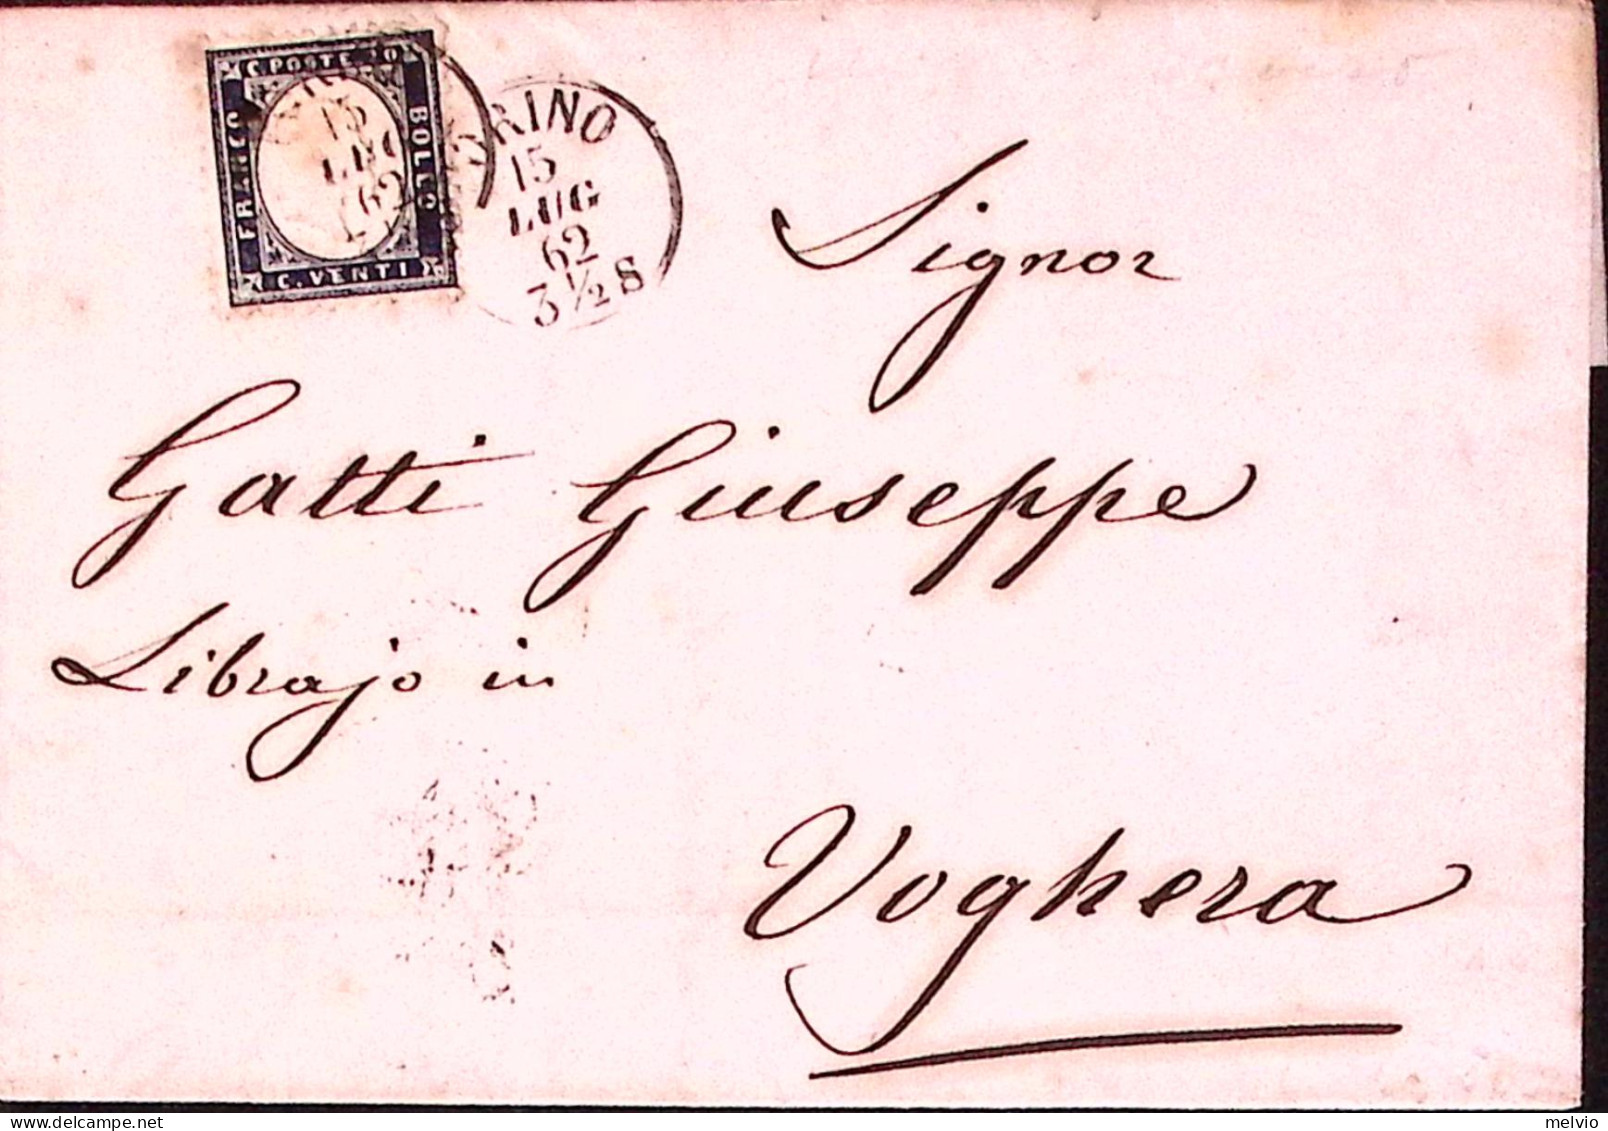 C. POSTE 20
FRANCO
BOLLO
C. VENTI
15
LUG
62
TORINO
15
LUG
62
3½S
Signor
Gatti Giuseppe
Librajo in
Voghera
melvio